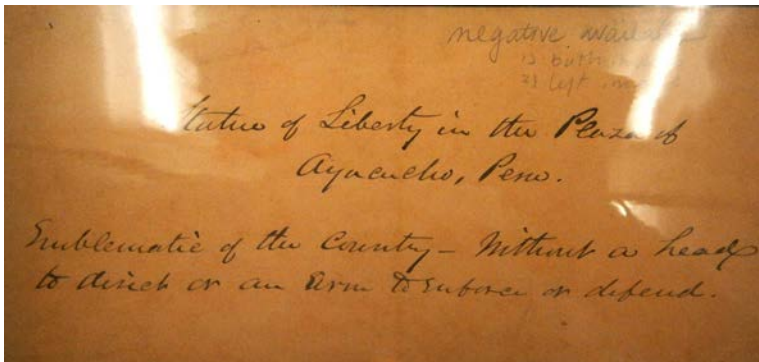 negative
1) both
2) left
Statue of Liberty in the Plaza of
Ayacucho, Peru.
Emblematic of the Country – Without a head
to direct or an arm to enforce or defend.